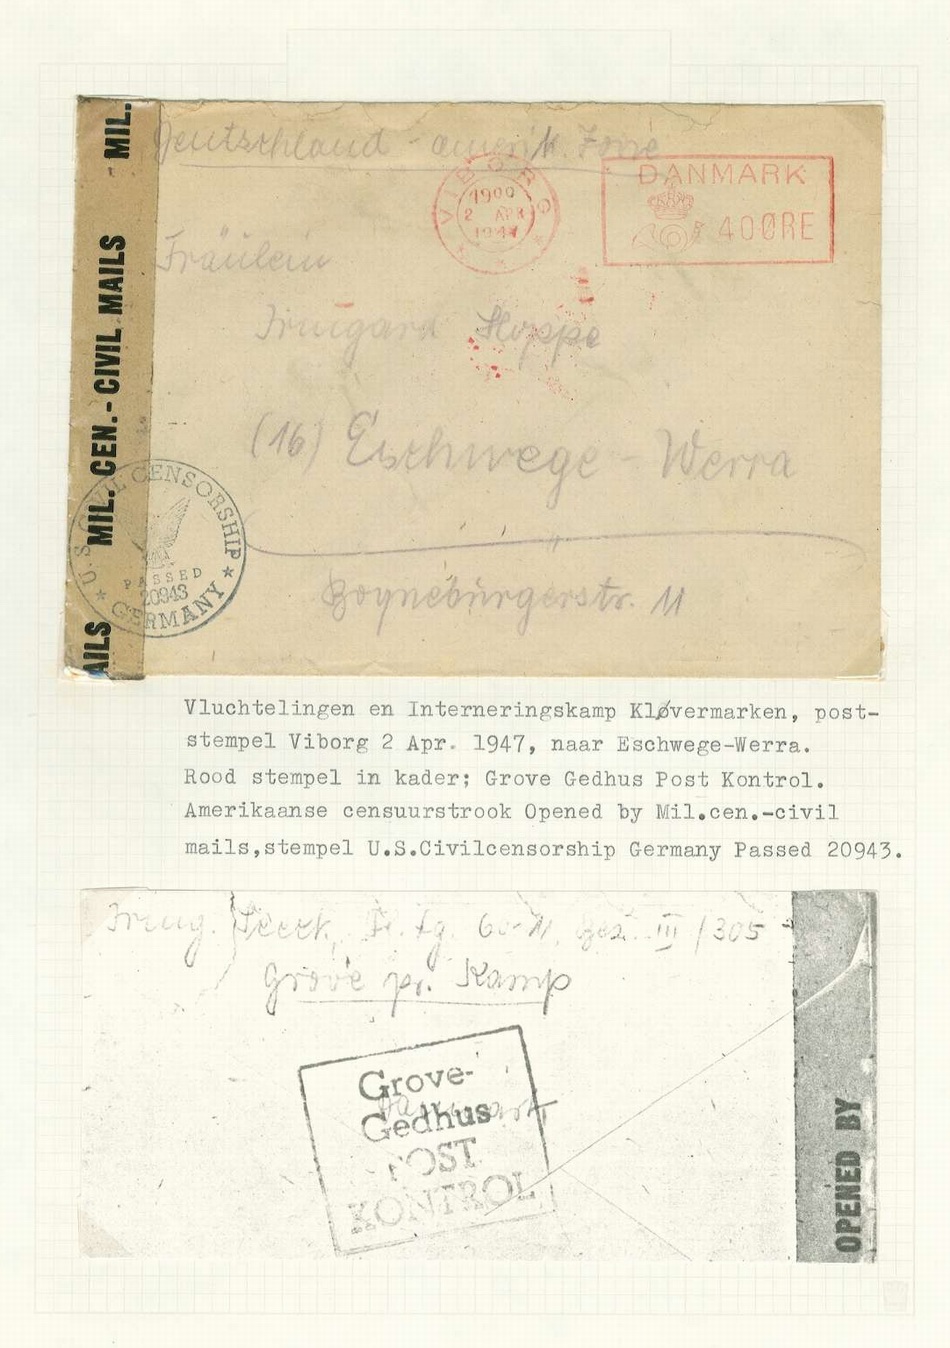 MIL. CEN.-CIVIL MAILS
MIL.
AILS
Deutschland - amerik. Zone
VIBORG
1900
2 APR
1947
DANMARK
40 ØRE
Fräulein
Irmgard Hoppe
(16) Eschwege - Werra
Boyneburgerstr. 11
U.S. CIVIL CENSORSHIP
PASSED
20943
GERMANY
Vluchtelingen en Interneringskamp Kløvermarken, post-
stempel Viborg 2 Apr. 1947, naar Eschwege-Werra.
Rood stempel in kader; Grove Gedhus Post Kontrol.
Amerikaanse censuurstrook Opened by Mil.cen.-civil
mails,stempel U.S.Civilcensorship Germany Passed 20943.
Irmg. III / 305
Grove pr. Kamp
Danmark
Grove-
Gedhus
POST
KONTROL
OPENED BY